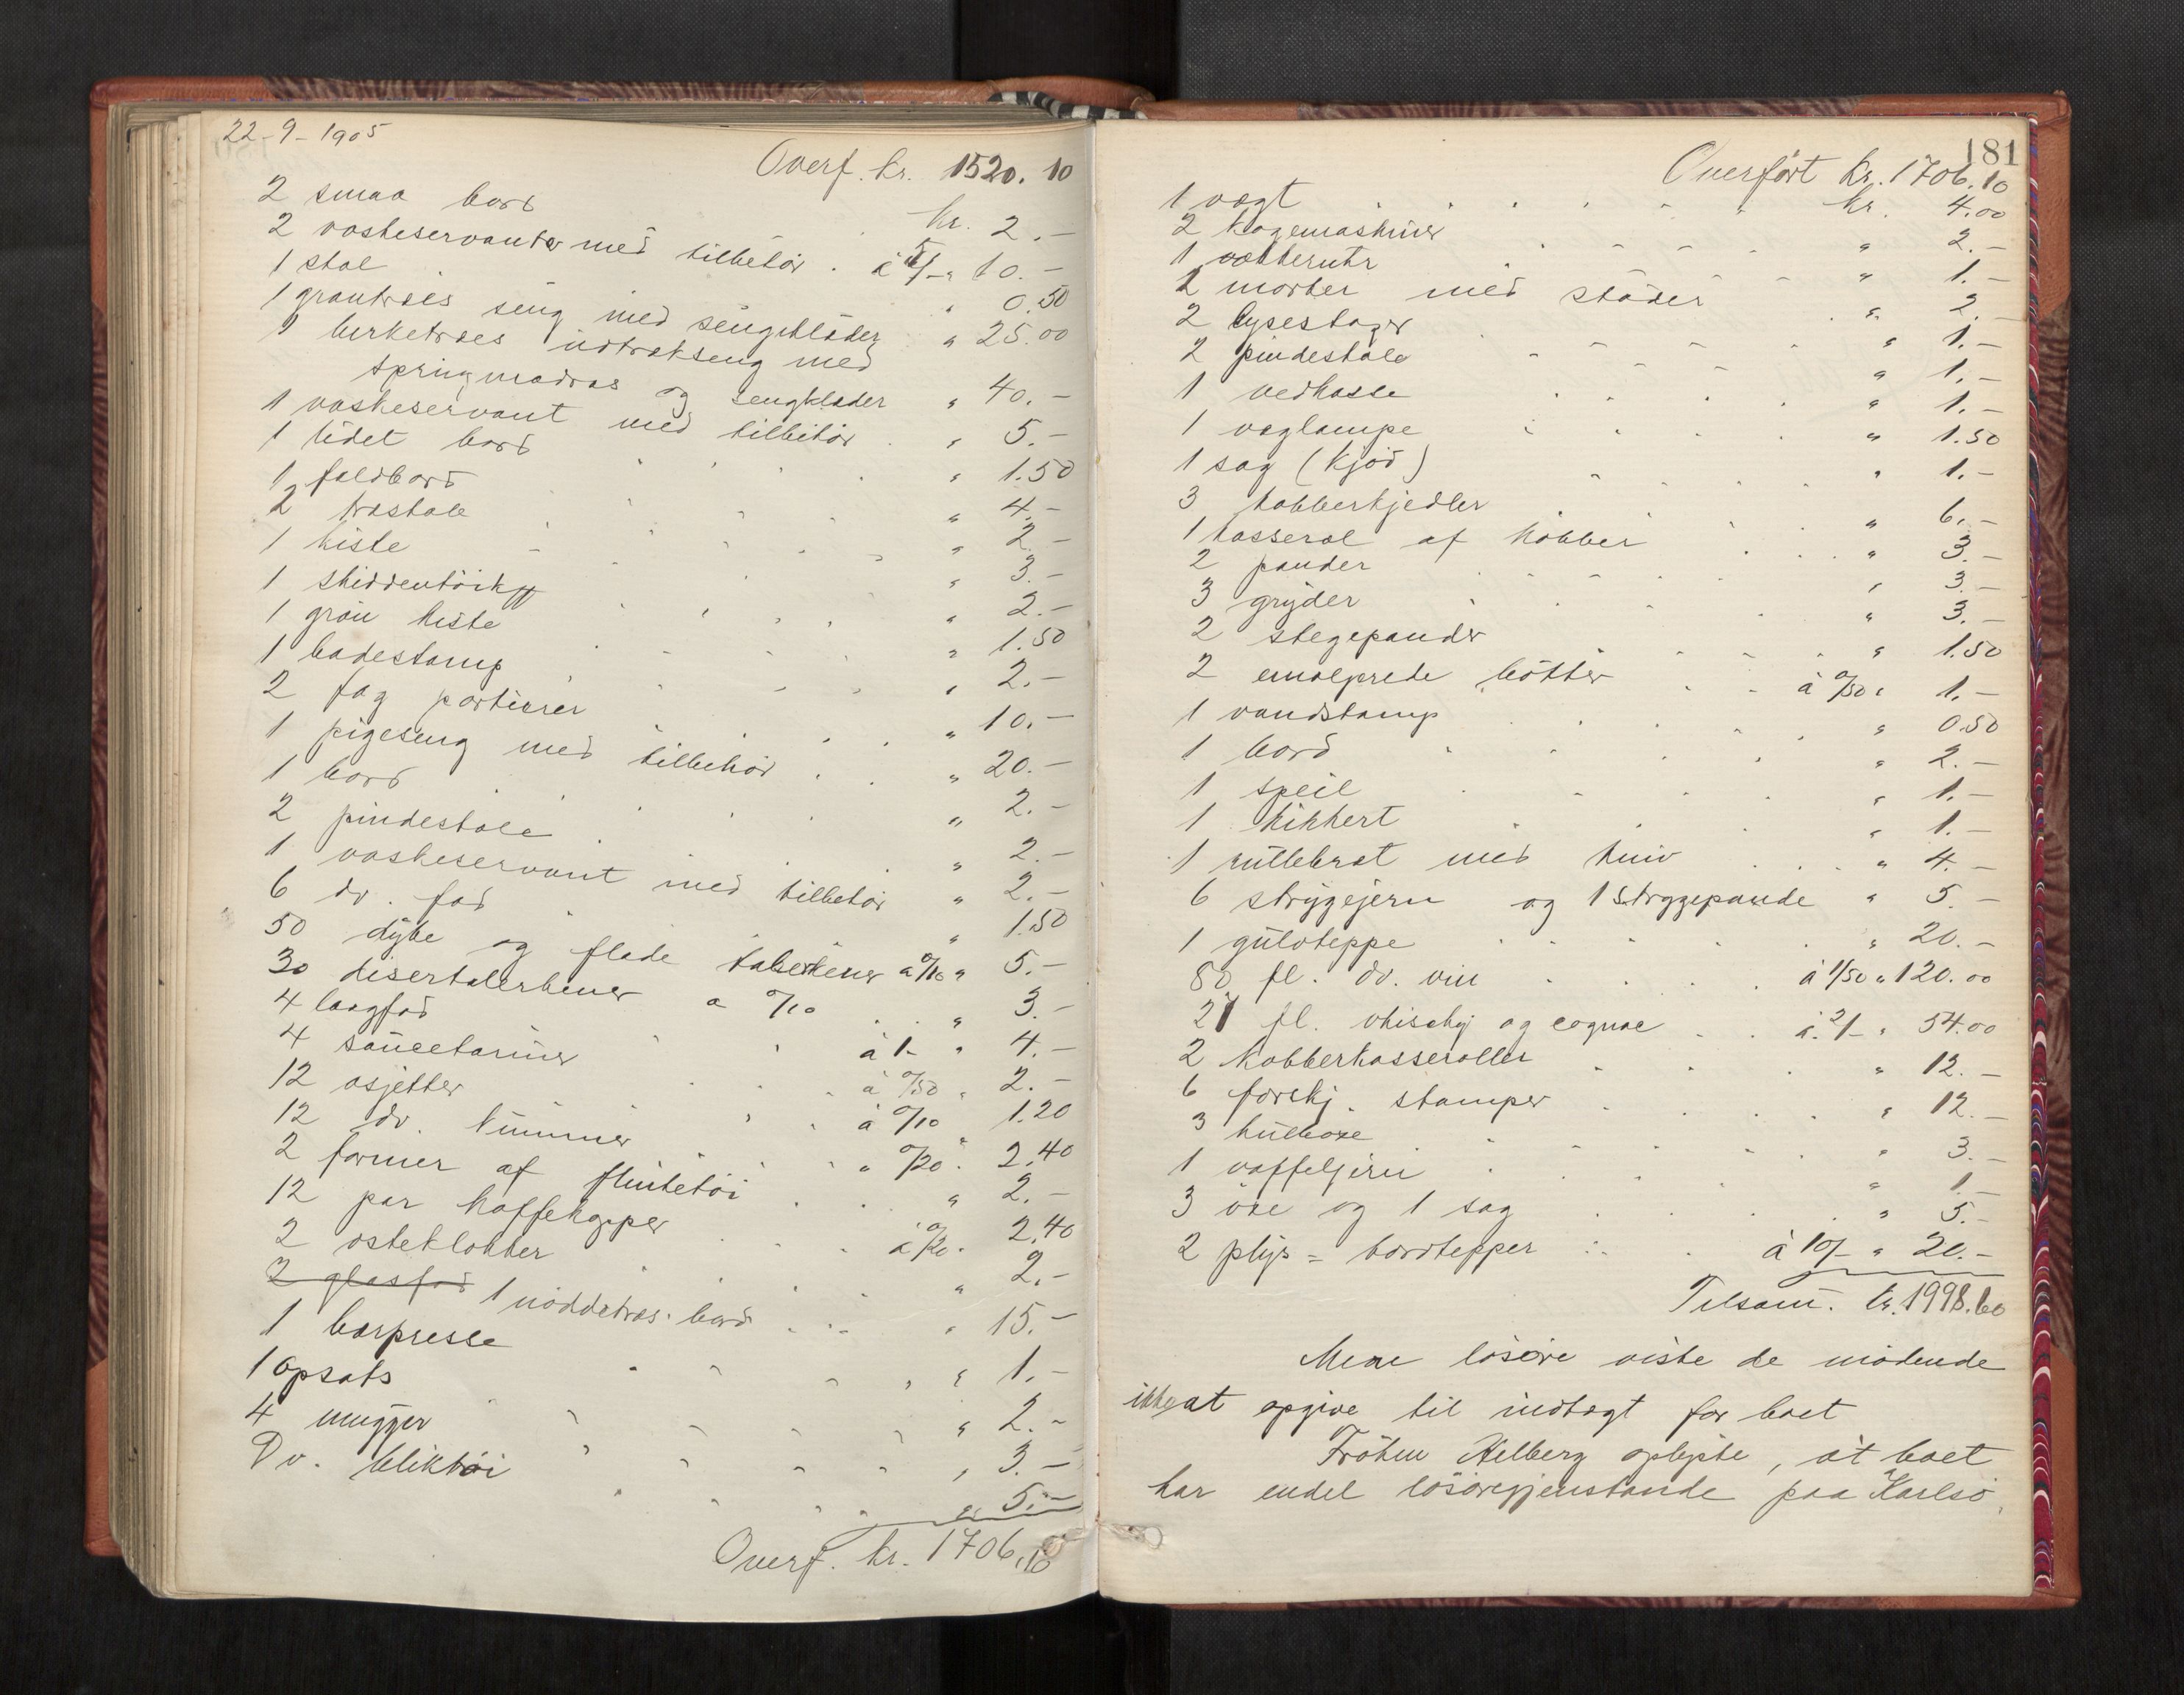 22-9-1905
Overf. kr. 1520.10
2 smaa bord kr. 2.-
2 vaskeservanter med tilbehör . à 5/- " 10.-
1 stol " 0.50
1 grantræes seng med sengeklöder " 25.00
1 birketræes udtrækseng med
springmadras og sengklæder " 40.-
1 vaskeservant med tilbehör . " 5.-
1 lidet bord " 1.50
1 foldbord " 4.-
2 træstole " 2.-
1 kiste " 3.-
1 skiddentöik " 2.-
1 grön kiste " 1.50
1 badestamp " 2.-
2 fag portierer " 10.-
1 pigeseng med tilbehör . . " 20.-
1 bord " 2.-
2 pindestole " 2.-
1 vaskeservant med tilbehör " 2.-
6 dv. fad " 1.50
50 dybe og flade talerkener à 0/10 " 5.-
30 disertalerkener a 0/10 . . " 3.-
4 laagfad à 1.- " 4.-
4 sauceterriner à 0/50 " 2.-
12 asjetter à 0/10 1.20
12 dv. kummer " 0/20 " 2.40
2 former af flintetöi . . " 2.-
12 par kaffekopper à 0/20 " 2.40
2 osteklokker " 2.-
2 glasfad 1 nöddetræs. bord . . . " 15.-
1 bærpresse " 1.-
1 Opsats " 2.-
4 mugger " 3.-
Dv. bliktöi " 5.-
Overf. kr. 1706,10
181
Overfört kr. 1706.10
1 vægt kr. 4.00
2 kogemaskiner " 2.-
1 vækkeruhr " 1.-
2 morter med stöder " 2.-
2 lysestager " 1.-
2 pindestole " 1.-
1 vedkasse " 1.-
1 væglampe " 1.50
1 sag (kjöd) " 1.-
3 kobberkjedler " 6.-
1 kasserol af kobber . . . " 3.-
2 pander " 3.-
3 gryder " 3.-
2 stegepander " 1.50
2 emaljerede bötter à 0/50 " 1.-
1 vandstamp " 0.50
1 bord " 2.-
1 speil " 1.-
1 kikkert " 1.-
1 rullebræt med kniv . . . " 4.-
6 strygejern og 1 strygepande " 5.-
1 gulvteppe " 20.-
80 fl. dv. vin à 1/50 " 120.00
27 fl. whisky og cognac . . à 2/- " 54.00
2 kobberkasseroller " 12.-
6 forskj. stamper " 12.-
3 " 3.-
1 vaffeljern " 1.-
3 öxe og 1 sag " 5.-
2 plys = bordtepper à 10/- " 20.-
Tilsam. kr. 1998.60
Mere lösöre viste de mödende
ikke at opgive til indtægt for boet
Fröken Hilberg oplyste, at boet
har endel lösöregjenstande paa Karlsö.